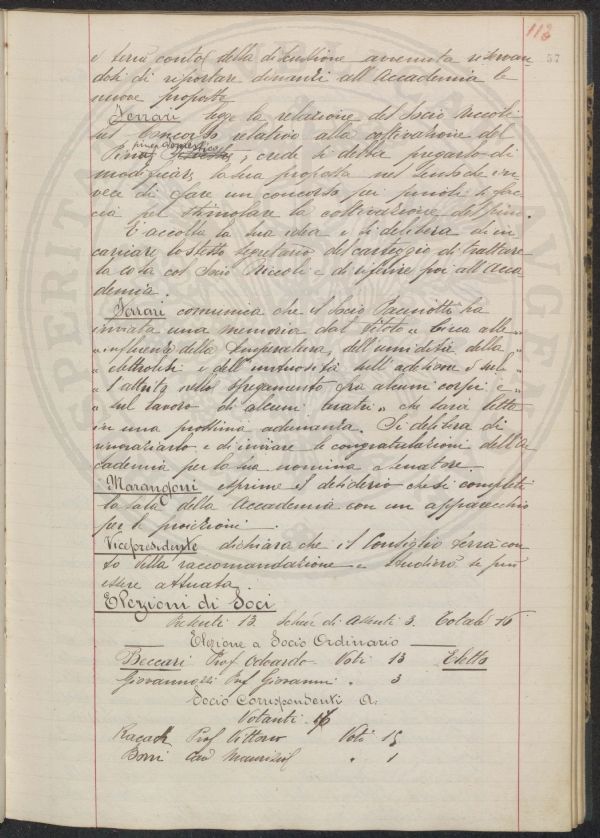 113
57
e terrà conto della discussione avvenuta riservan-
dosi di riportare dinanzi all'Accademia le
nuove proposte
Ferrari legge la relazione del Socio Piccioli
sul Concorso relativo alla coltivazione del
Pino domestico, crede si debba pregarlo di
modificare la sua proposta nel senso che in-
vece di fare un concorso per premi si fac-
cia per stimolare la coltivazione del pino.
È accolta la sua idea e si delibera di in-
caricare lo stesso Segretario del carteggio di trattare
la cosa col Socio Piccioli e di riferire poi all'Acca-
demia.
Ferrari comunica che il Socio Pacinotti ha
inviata una memoria dal titolo "Circa alle "
" influenze della temperatura, dell'umidità della "
" elettrolisi e dell'untuosità sull'adesione e sul "
" l'attrito nello sfregamento fra alcuni corpi e "
" sul lavoro di alcuni " che sarà letta
in una prossima adunanza. Si delibera di
ringraziarlo e di inviare le congratulazioni dell'Ac
cademia per la sua nomina a Senatore.
Marangoni esprime il desiderio che si completi
la sala della Accademia con un apparecchio
per le proiezioni.
Vicepresidente dichiara che il Consiglio terrà con-
to della raccomandazione e studierà se può
essere attuata.
Elezioni di Soci
Presenti 13. Schede di Assenti 3. Totale 16
Elezione a Socio Ordinario
Beccari Prof. Odoardo Voti 13 Eletto
Giovannozzi Prof Giovanni " 3
Socio Corrispondenti A.
Votanti 16
Prof Vittorio Voti 15
Borri Cav Maurizio " 1